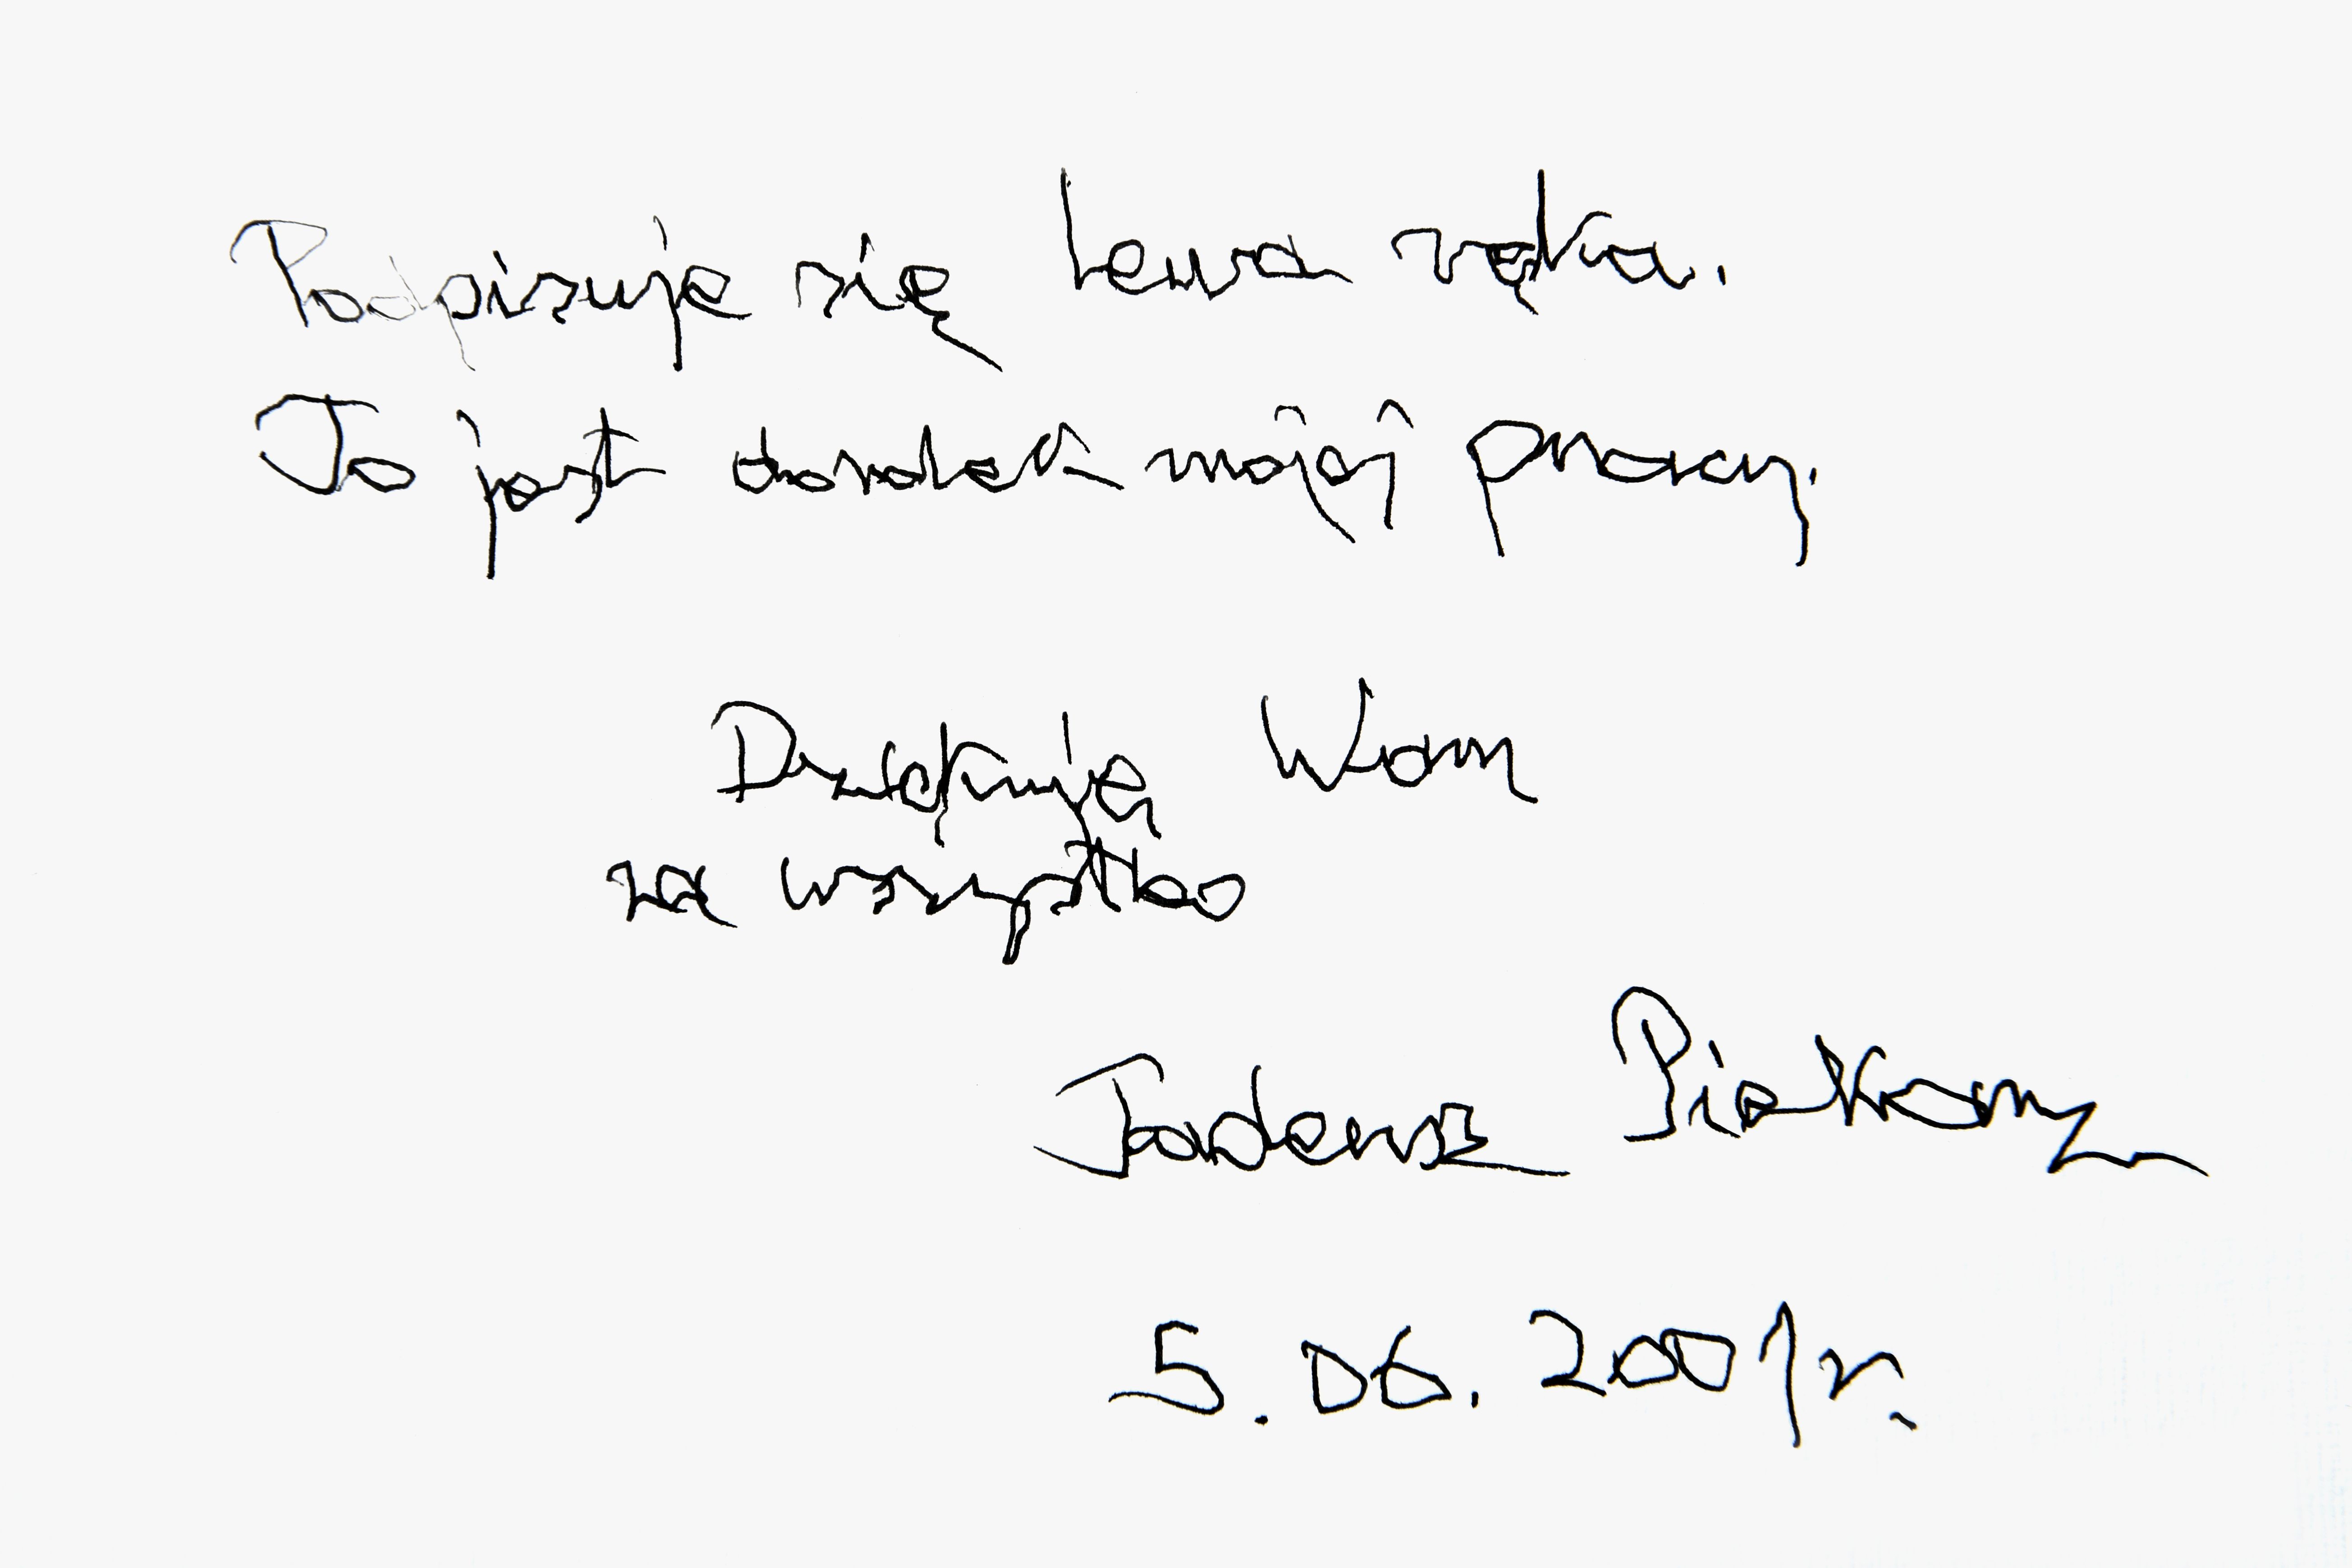 Podpisuje się lewa ręka.
To jest dorobek mojej pracy.
Dziękuję Wam
za wszystko
Tadeusz Piekarz
5.06.2001r.